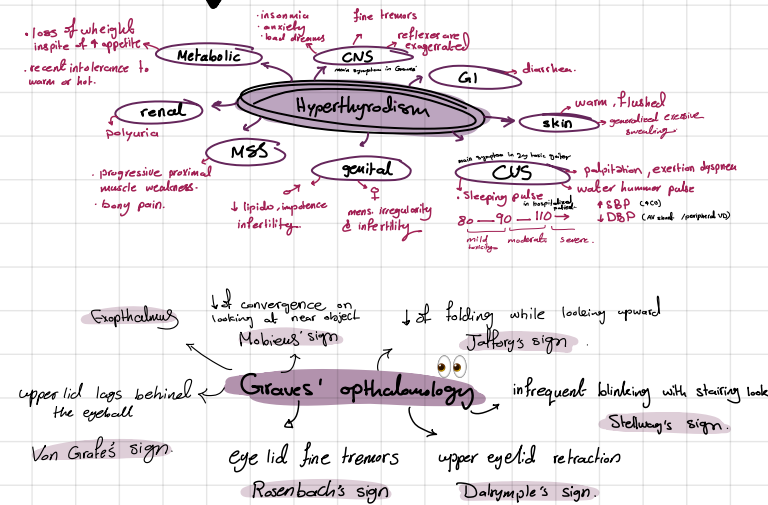 • loss of wheight
inspite of ↑ appetite
• recent intolerance to
warm or hot.
Metabolic
• insomnia
• anxiety
• bad dreams
fine tremors
reflexes are
exagerrated
CNS
main symptom in Graves'
GI
diarrhea.
Hyperthyrodism
renal
polyuria
skin
warm, flushed
generalized excessive
sweating.
MSS
• progressive proximal
muscle weakness.
• bony pain.
genital
♂
↓ lipido, impotence
infertility.
♀
mens. irregularity
& infertility.
main symptom in 2ry toxic goiter
CVS
palpitation, exertion dyspnea
water hummer pulse
↑ SBP (↑CO)
↓ DBP (AV shunt / peripheral VD)
• Sleeping pulse
in hospitalized
patient.
80 — 90 — 110 →
mild
toxicity
moderate
severe.
Exopthalmus
↓ of convergence on
looking at near object
Mobieus' sign
↓ of folding while looking upward
Jaffory's sign.
Graves' opthalomology
upper lid lags behined
the eyeball
Von Grafe's sign.
infrequent blinking with stairing look
Stellwag's sign.
eye lid fine tremors
Rosenbach's sign
upper eyelid retraction
Dalrymple's sign.